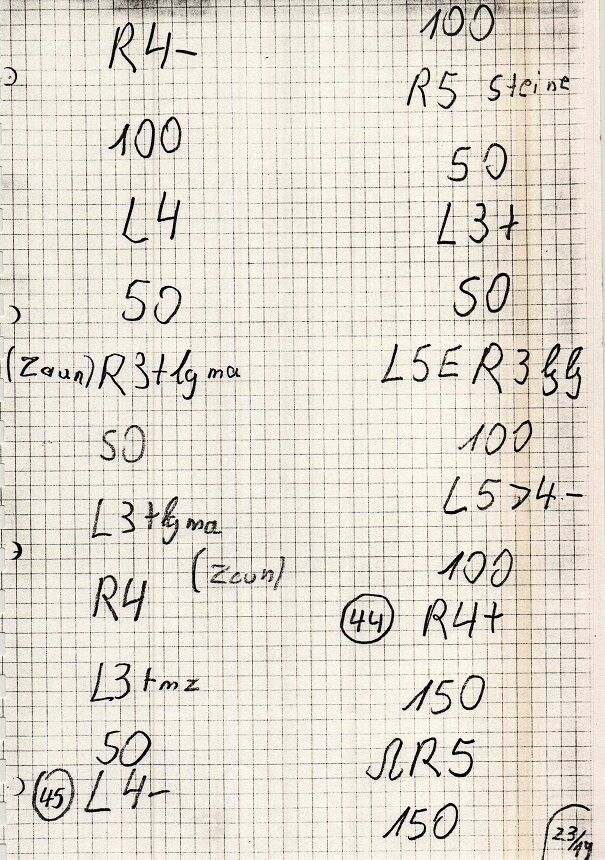 R4-
100
L4
50
(Zaun) R3+lg ma
50
L3+lg ma
(Zaun)
R4
L3+mz
50
45 L4-
100
R5 Steine
50
L3+
50
L5E R3 lglg
100
L5>4-
100
44 R4+
150
ΩR5
150
23/14